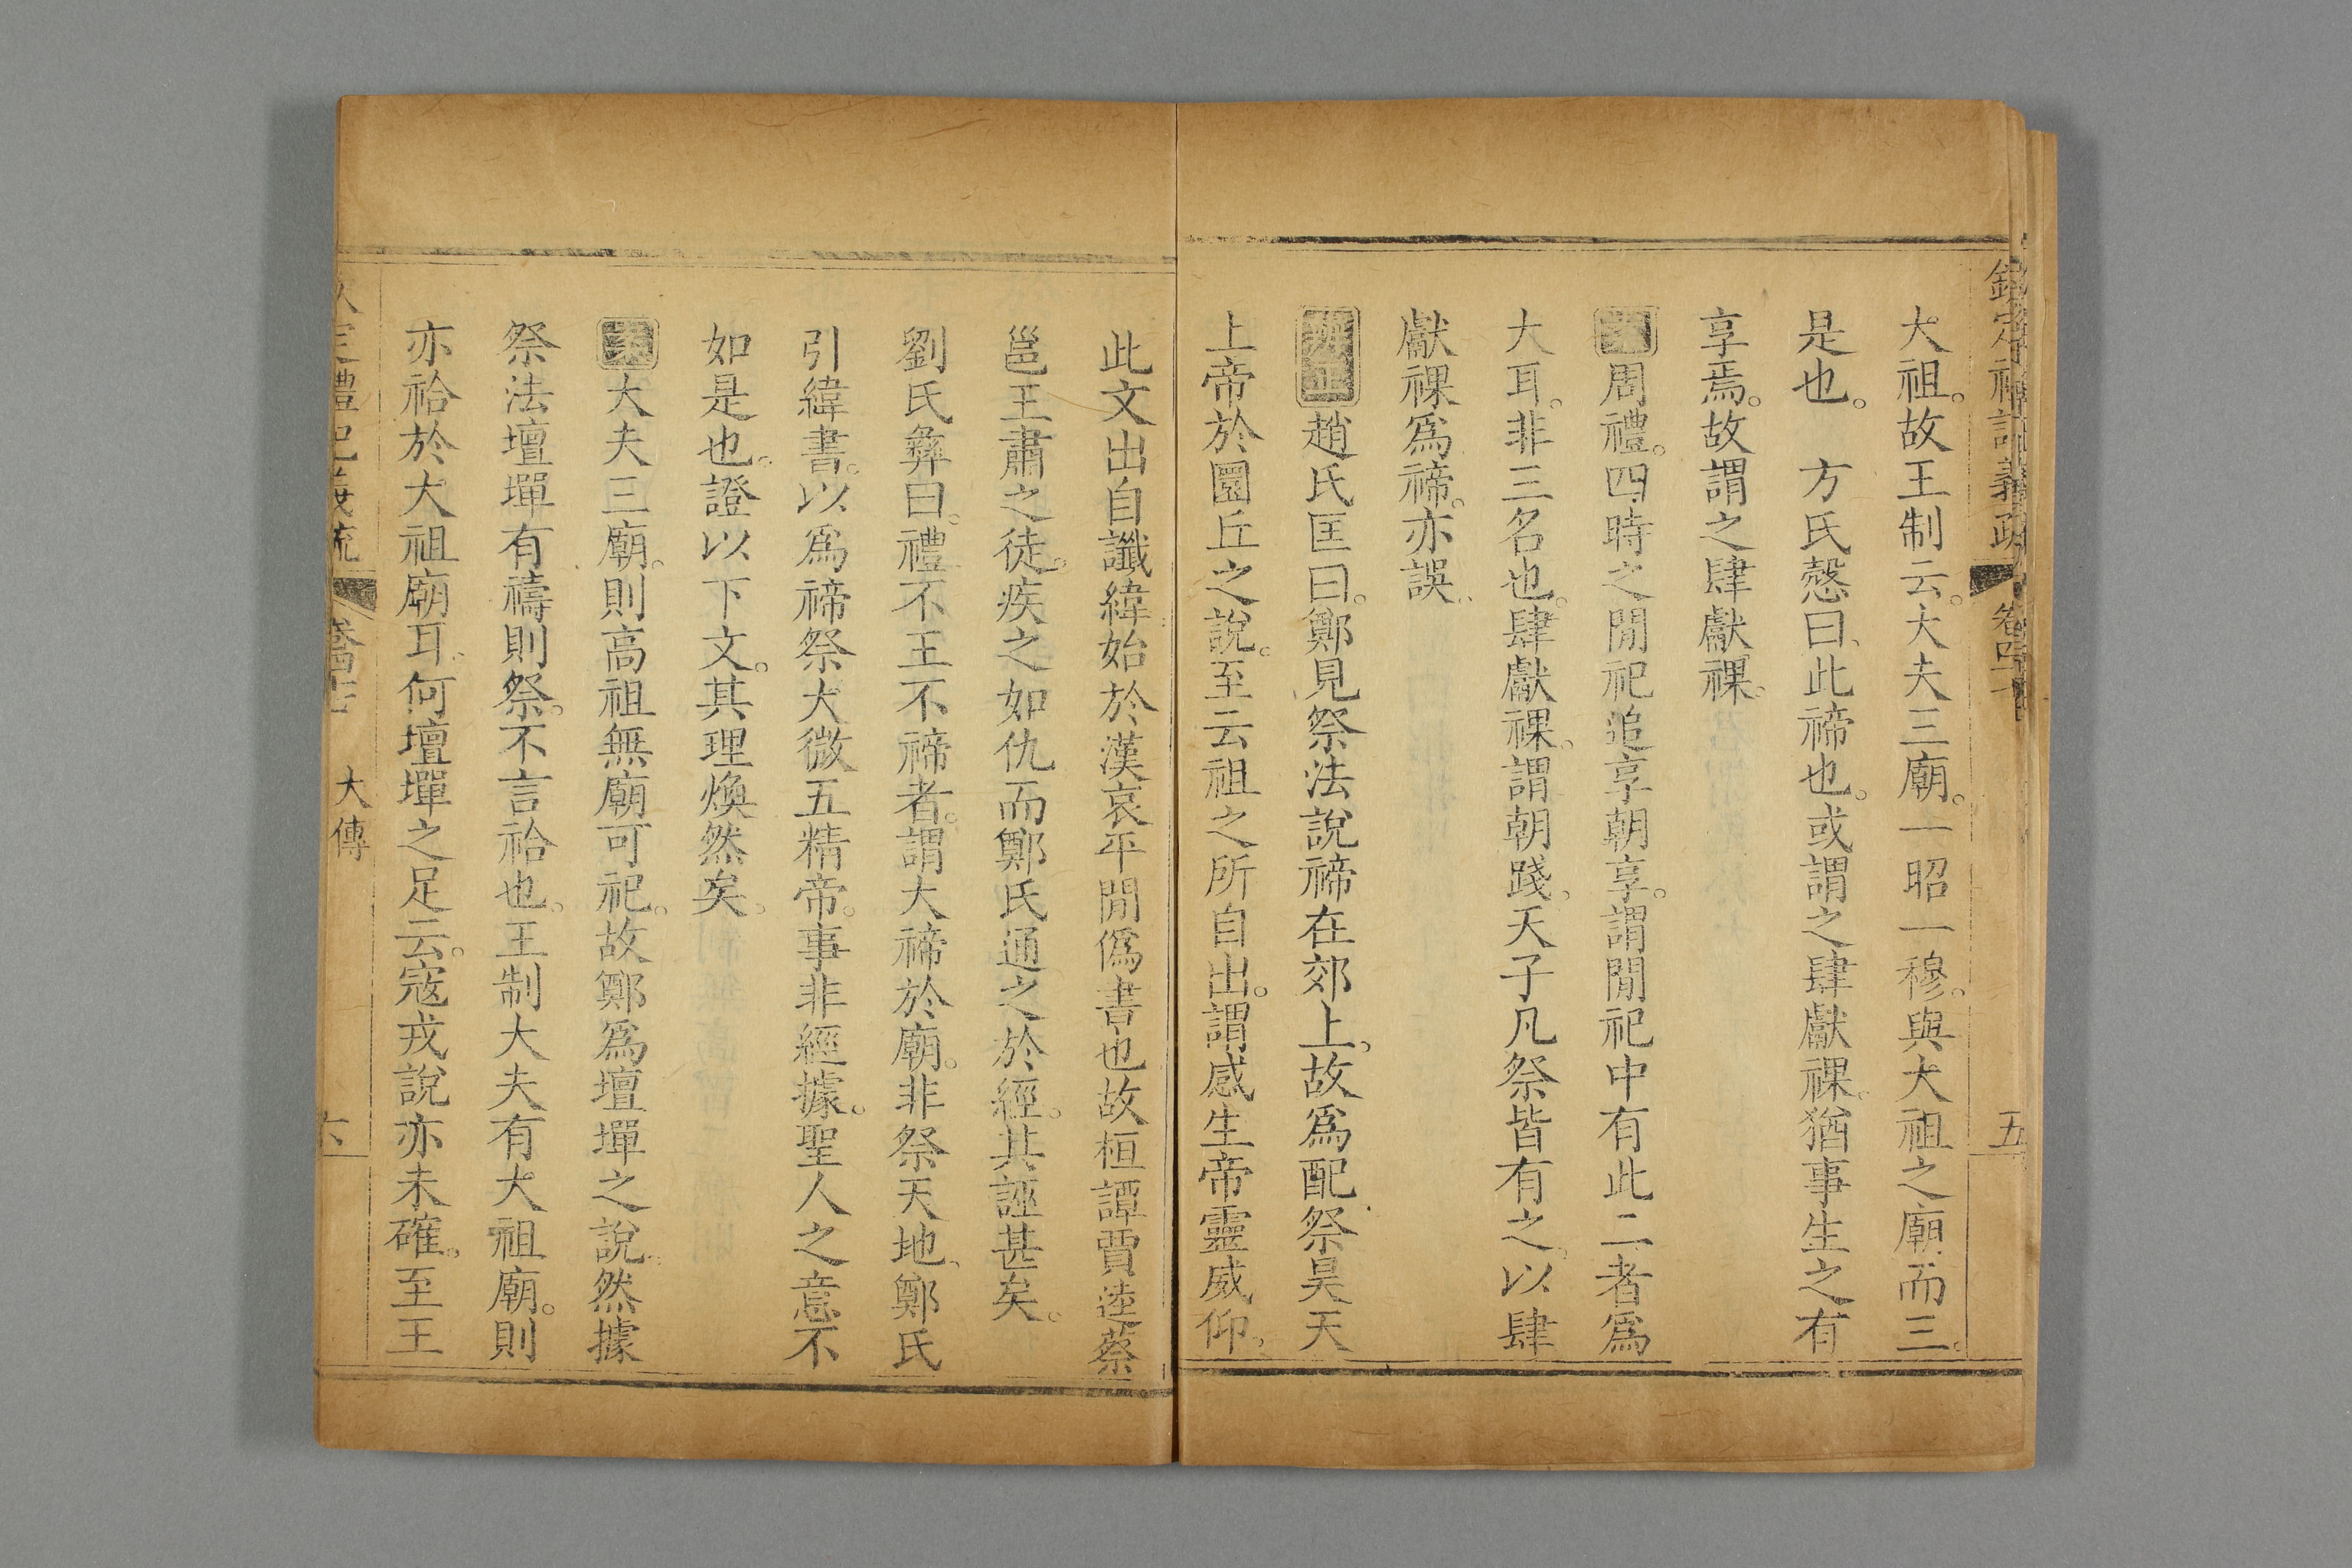 欽定禮記義疏 卷四十 五
大祖。故王制云。大夫三廟。一昭一穆。與大祖之廟而三。
是也。　方氏慤曰、此禘也。或謂之肆獻祼。猶事生之有
享焉。故謂之肆獻祼。
案周禮。四時之閒祀追享朝享。謂閒祀中有此二者為
大耳。非三名也。肆獻祼。謂朝踐。天子凡祭皆有之。以肆
獻祼為禘。亦誤。
辨正趙氏匡曰。鄭見祭法說禘在郊上。故為配祭昊天
上帝於圜丘之說。至云祖之所自出。謂感生帝靈威仰。
此文出自讖緯始於漢哀平閒偽書也故桓譚賈逵蔡
邕王肅之徒。疾之如仇而鄭氏通之於經。其誣甚矣。
劉氏彝曰。禮不王不禘者。謂大禘於廟。非祭天地、鄭氏
引緯書。以為禘祭大微五精帝。事非經據。聖人之意不
如是也。證以下文。其理煥然矣。
案大夫三廟。則高祖無廟可祀。故鄭為壇墠之說。然據
祭法壇墠有禱則祭。不言祫也。王制大夫有大祖廟。則
亦祫於大祖廟耳。何壇墠之足云。寇戎說亦未確。至王
欽定禮記義疏 大傳